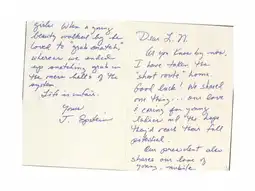 Dear L.N.
As you know by now,
I have taken the
"short route" home.
Good luck! We shared
one thing... our love
& caring for young
ladies at the hope
they'd reach their full
potential.
Our president also
shares our love of
young, nubile
girls. When a young
beauty walked by he
loved to "grab snatch,"
whereas we ended
up snatching grub in
the mess halls of the
system.
Life is unfair.
Yours
J. Epstein